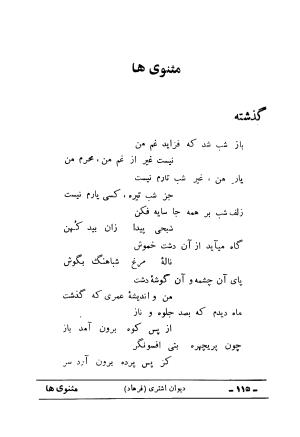 مثنوی ها
گذشته
باز شب شد که فزاید غم من
نیست غیر از غم من، محرم من
یار من ، غیر شب تارم نیست
جز شب تیره، کسی یارم نیست
زلف شب بر همه جا سایه فکن
شبحی پیدا زان بید کهن
گاه میآید از آن دشت خموش
نالهٔ مرغ شباهنگ بگوش
پای آن چشمه و آن گوشهٔ دشت
من و اندیشهٔ عمری که گذشت
ماه دیدم که بصد جلوه و ناز
از پس کوه برون آمد باز
چون پریچهره بتی افسونگر
کز پس پرده برون آرد سر
ـ ۱۱۵ ـ دیوان اشتری (فرهاد) مثنوی ها